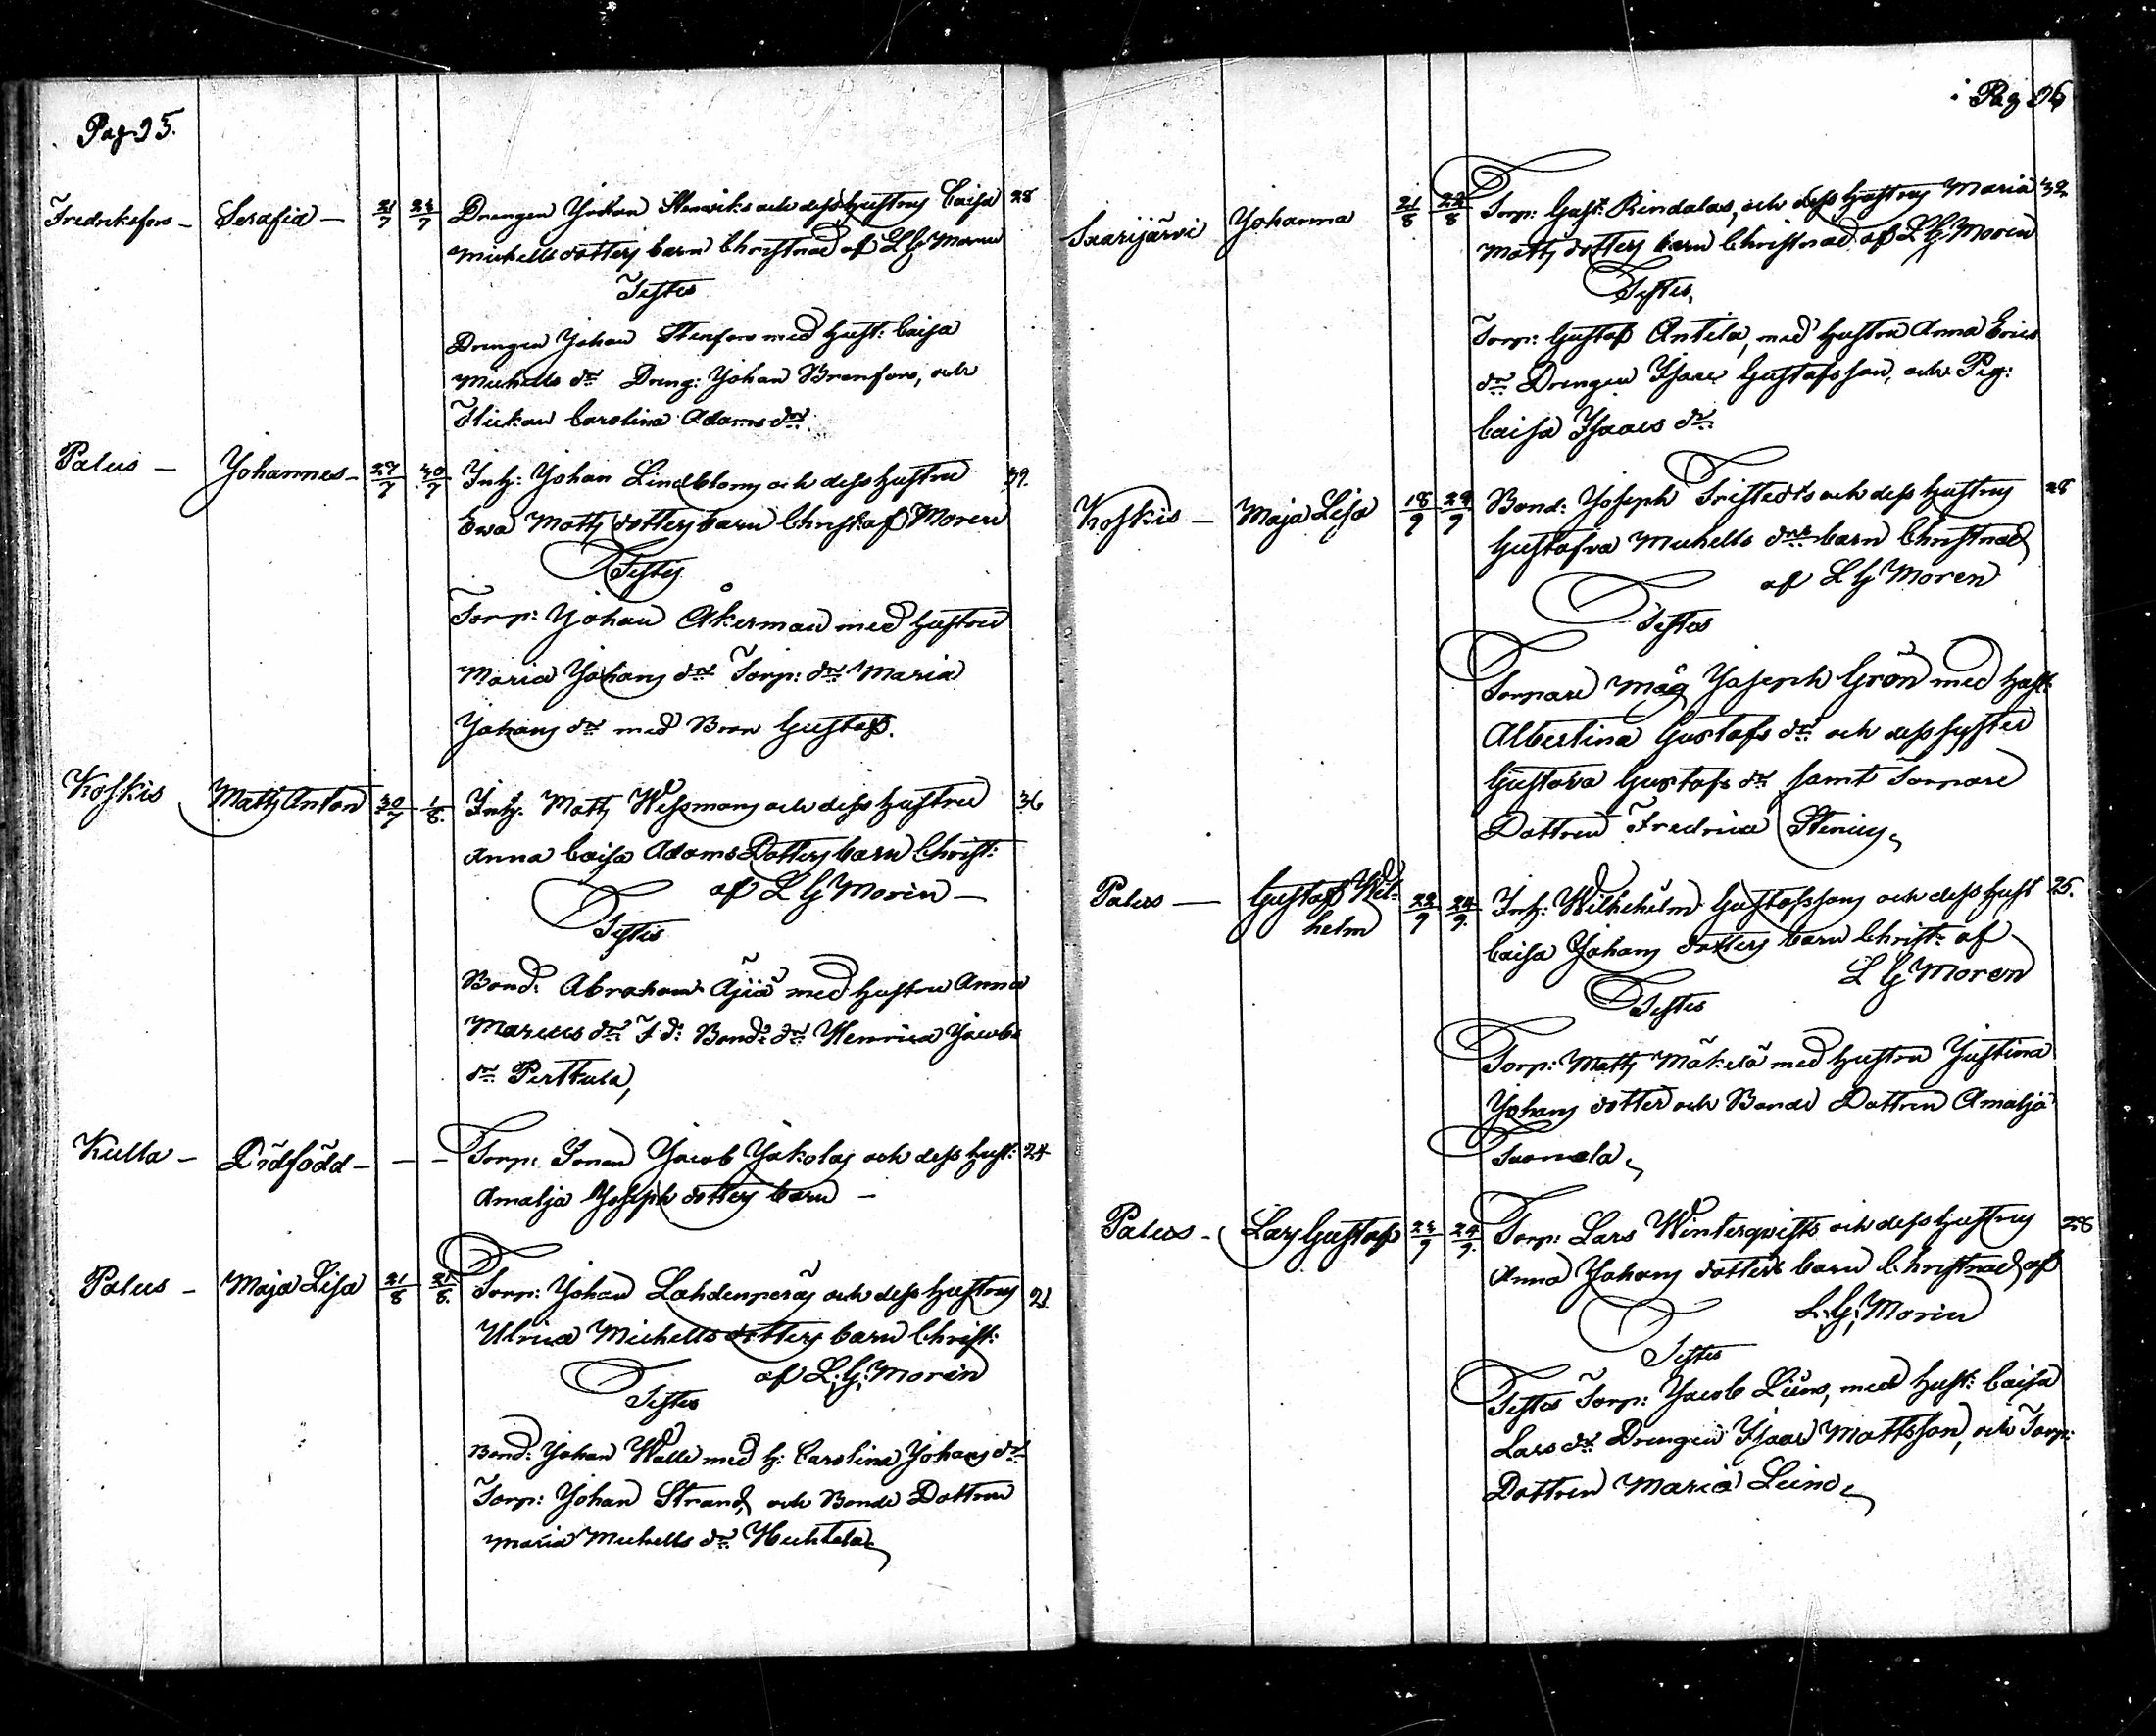 Pag 95.
Fredriksfors – Serafia – 21/7 23/7 Drengen Johan Henriks och dess hustrus Caisa 28
Michelsdotters barn Christnad af L G Moren
Testes
Drengen Johan Stenfors med hust: Caisa
Michels dr Dreng: Johan Branfors, och
Flickan Carolina Adams dr
Palus – Johannes – 27/7 30/7 Inh: Johan Lindbloms och dess hustru 39.
Ewa Matts dotters barn Christ af Moren
Testes
Torp: Johan Åkerman med hustru
Maria Johans dr Torp: dr Maria
Johans dr med Bron Gustaf.
Koskis Matts Anton 30/7 1/8. Inh: Matts Wessmans och dess hustru 36
Anna Caisa Adams Dotters barn Christ:
af L G Moren –
Testes
Bond: Abraham Äjiä med hustru Anna
Marcus dr F d: Bond: dr Henrica Jacobs
dr Perttula,
Kulla – Dödfödd – – – Torp: Sonen Jacob Jakolas och dess hust: 24
Amalja Joseph dotters barn –
Palus – Maja Lisa 21/8 21/8. Torp: Johan Lahdenperäs och dess hustrus 21
Ulrica Michels dotters barn Christ:
af L: G: Moren
Testes
Bond: Johan Walli med h: Carolina Johans dr
Torp: Johan Strand, och Bonde Dottren
Maria Michels dr Huhtela
Pag 96
Saarijärvi Johanna 21/8 22/8 Torp: Gust: Rindalas, och dess hustrus Maria 32
Matts dotters barn Christnad af L G Moren
Testes,
Torp: Gustaf Antila, med hustru Anna Erics
dr Drengen Isaac Gustafsson, och Pig:
Caisa Isaacs dr
Koskis – Maja Lisa 18/9 29/9 Bond: Joseph Tristedts och dess hustrus 28
Gustafva Michels drs barn Christnad
af L G Moren
Testes
Torpare Måg Joseph Grön med hust:
Albertina Gustafs dr och dess syster
Gustava Gustafs dr samt Torpare
Dottren Fredrica Stenius,
Palus – Gustaf Wil-
helm 23/9 24/9. Inh: Wilhehelm Gustafssons och dess hust 25.
Caisa Johans dotters barn Christ: af
L G Moren
Testes
Torp: Matts Mäkelä med hustru Justina
Johans dotter och Bonde Dottren Amalja
Tuomela,
Palus – Lars Gustaf 23/9 24/9. Torp: Lars Winterqvists och dess hustrus 28
Anna Johans dotters barn Christnad af
L: G: Moren
Testes
Testes Torp: Jacob Leino, med hust: Caisa
Lars dr Drengen Isaac Mattsson, och Torp:
Dottren Maria Leino,